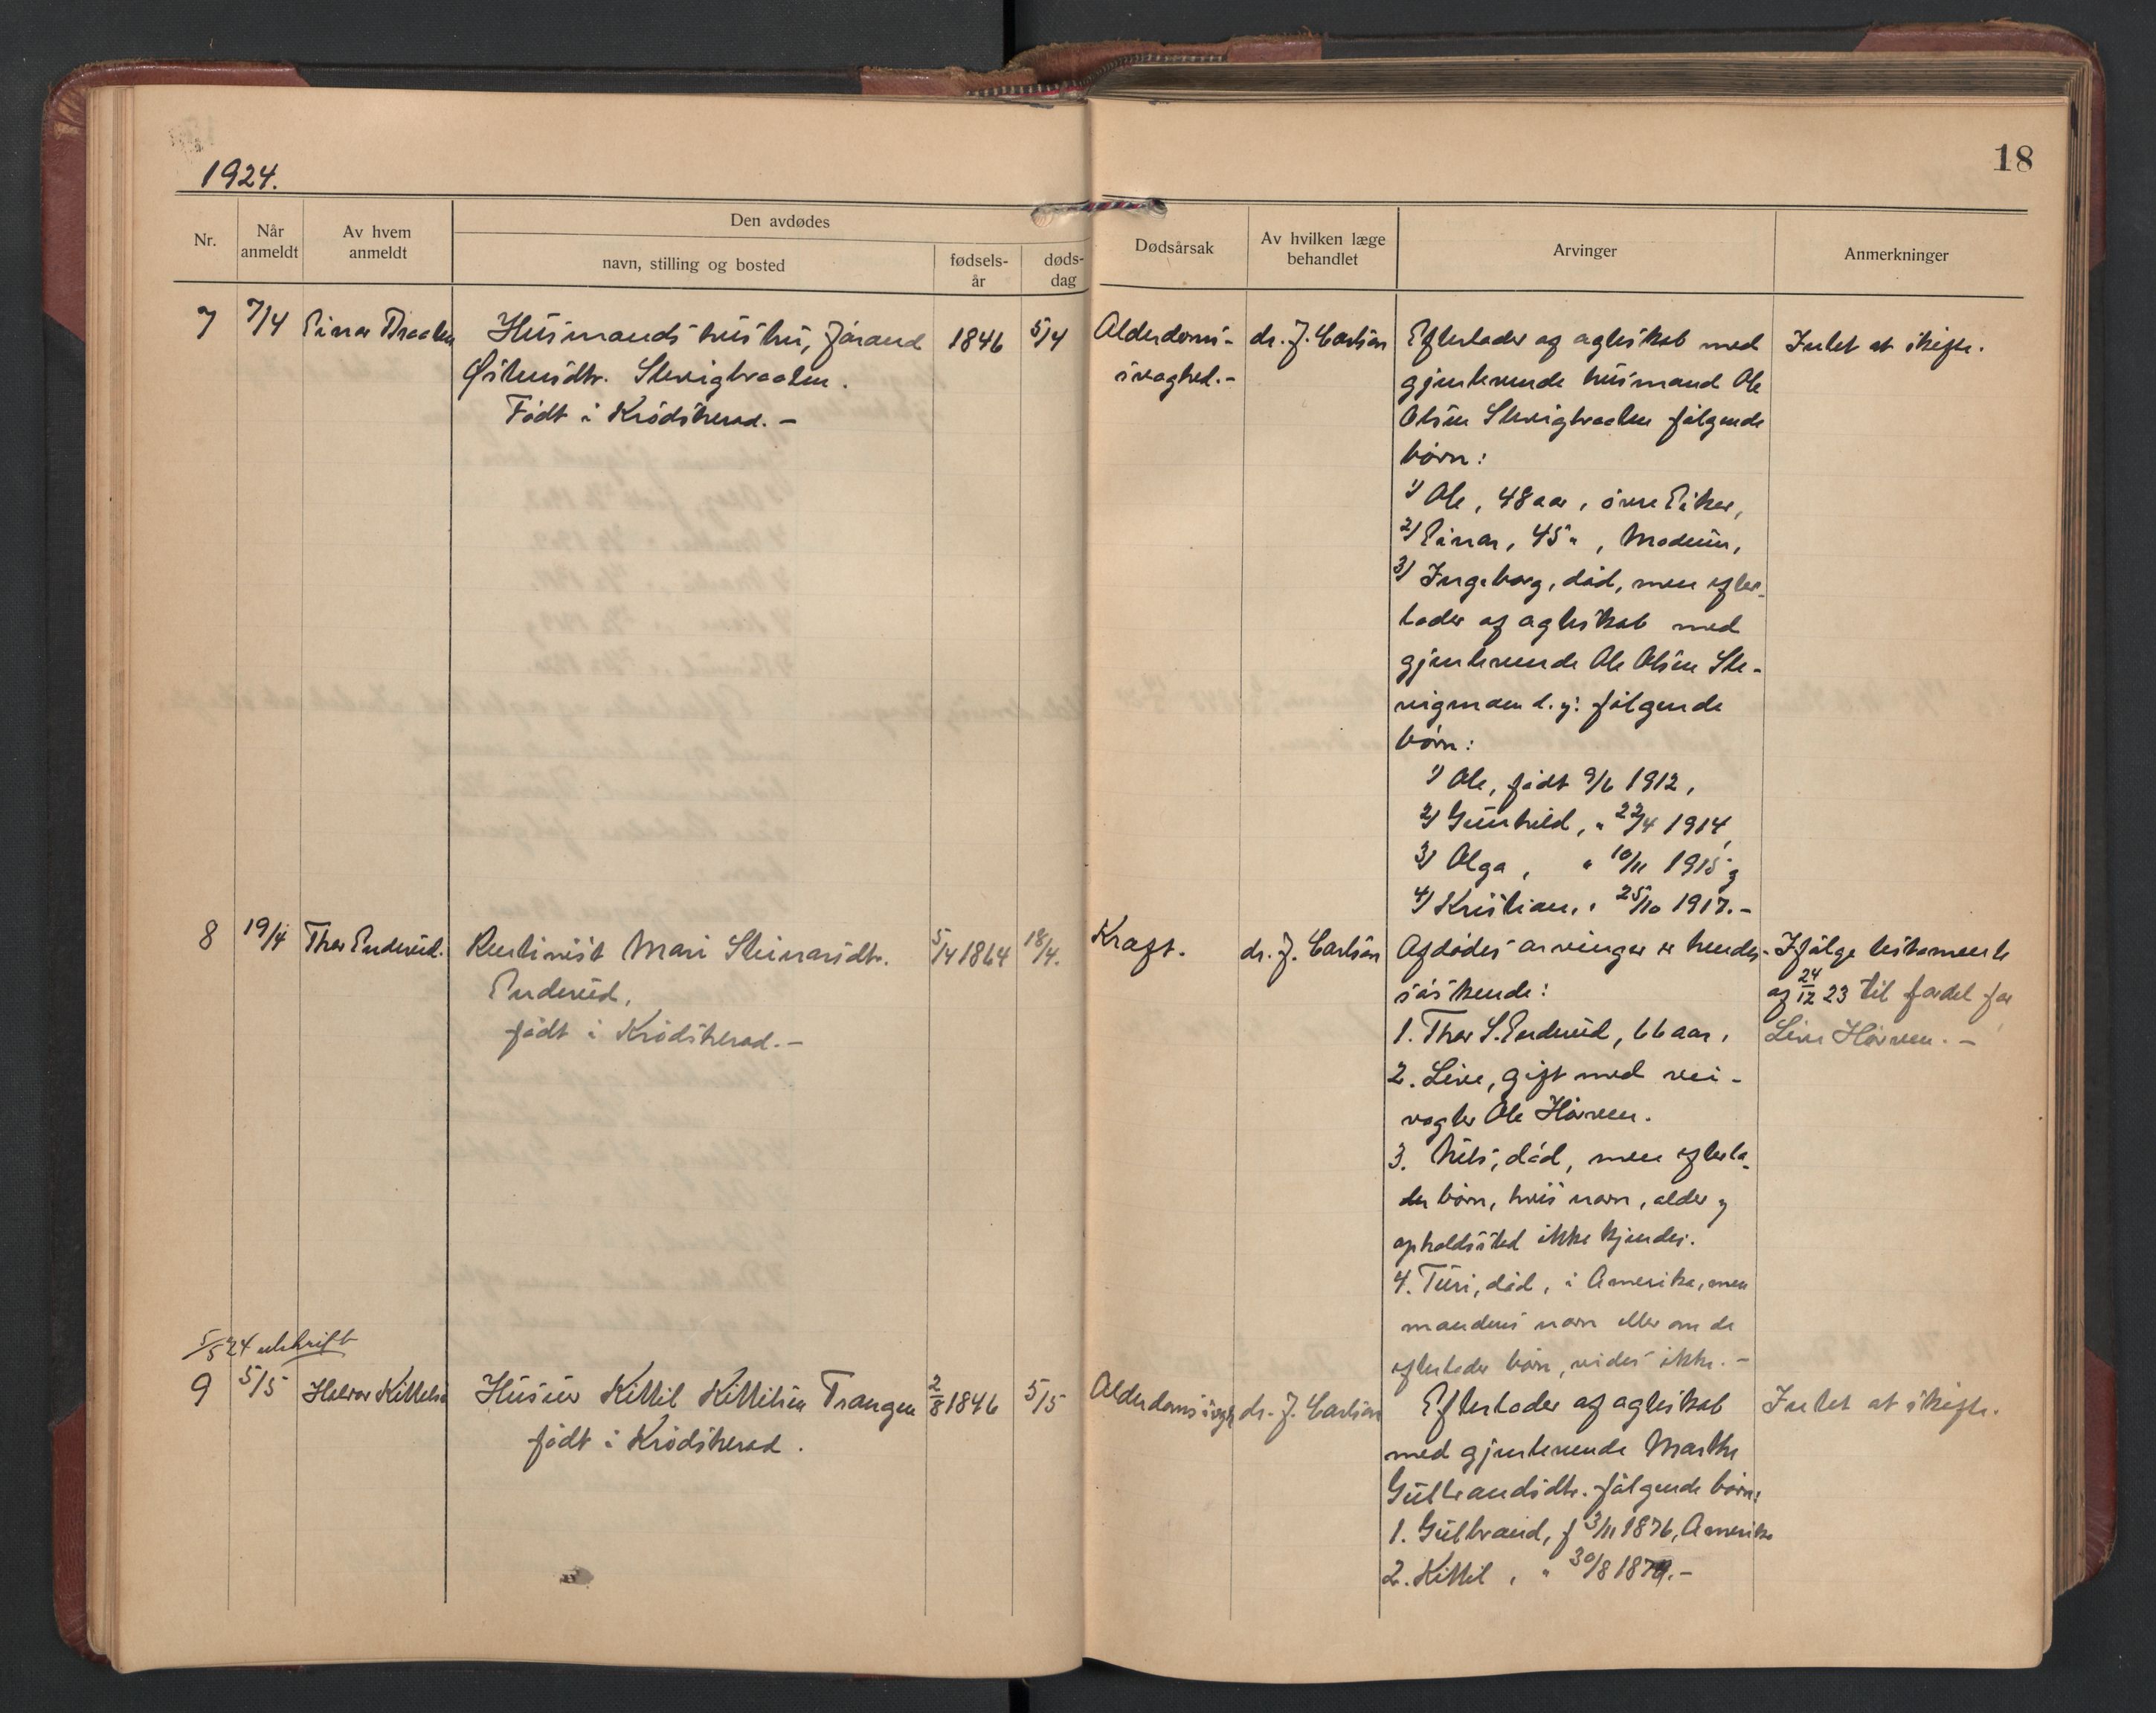 1924.
18
Den avdødes
Nr.
Når anmeldt
Av hvem anmeldt
navn, stilling og bosted
fødsels-år
døds-dag
Dødsårsak
Av hvilken læge behandlet
Arvinger
Anmerkninger
7 7/4 Einar Braaten
Husmandshustru, Jørand
Østensdtr. Slevigbraaten.
Født i Krødsherad. -
1846 5/4
Alderdoms-
svaghed. -
dr. J. Carlson
Efterlader og ægteskab med
gjenlevende husmand Ole
Olsen Slevigbraaten følgende
børn:
1) Ole, 48 aar, øvre Eiker,
2) Einar, 45 " , Modum,
3) Ingeborg, død, men efter-
lader af ægteskab med
gjenlevende Ole Olsen Sle-
vigmoen d.y. følgende
børn:
1) Ole, født 9/6 1912,
2) Gunhild, " 22/4 1914,
3) Olga, " 10/11 1915 og
4) Kristian, " 25/10 1917. -
Intet at skifte.
8 19/4 Thor Enderud.
Rentenist Mari Steinarsdtr.
Enderud,
født i Krødsherad. -
5/4 1864 18/4.
Kræft.
dr. J. Carlson
Afdødes arvinger er hendes
søskende:
1. Thor S. Enderud, 66 aar,
2. Live, gift med vei-
vogter Ole Hørven.
3. Nils, død, men efterla-
der børn, hvis navn, alder og
opholdssted ikke kjendes.
4. Turi, død, i Amerika, men
mandens navn eller om de
efterlader børn, vides ikke. -
Ifølge testamente
af 24/12 23 til fordel for
Live Hørven. -
5/5 24 utskrift
9 5/5 Halvor Kittelsen
Husier Kittil Kittilsen Trangen
født i Krødsherad.
2/8 1846 5/5
Alderdomssvagh.
dr. J. Carlson
Efterlader af ægteskab
med gjenlevende Marthe
Gulbrandsdtr. følgende børn:
1. Gulbrand, f 3/11 1876, Amerika
2. Kittil, " 30/8 1879. -
Intet at skifte.